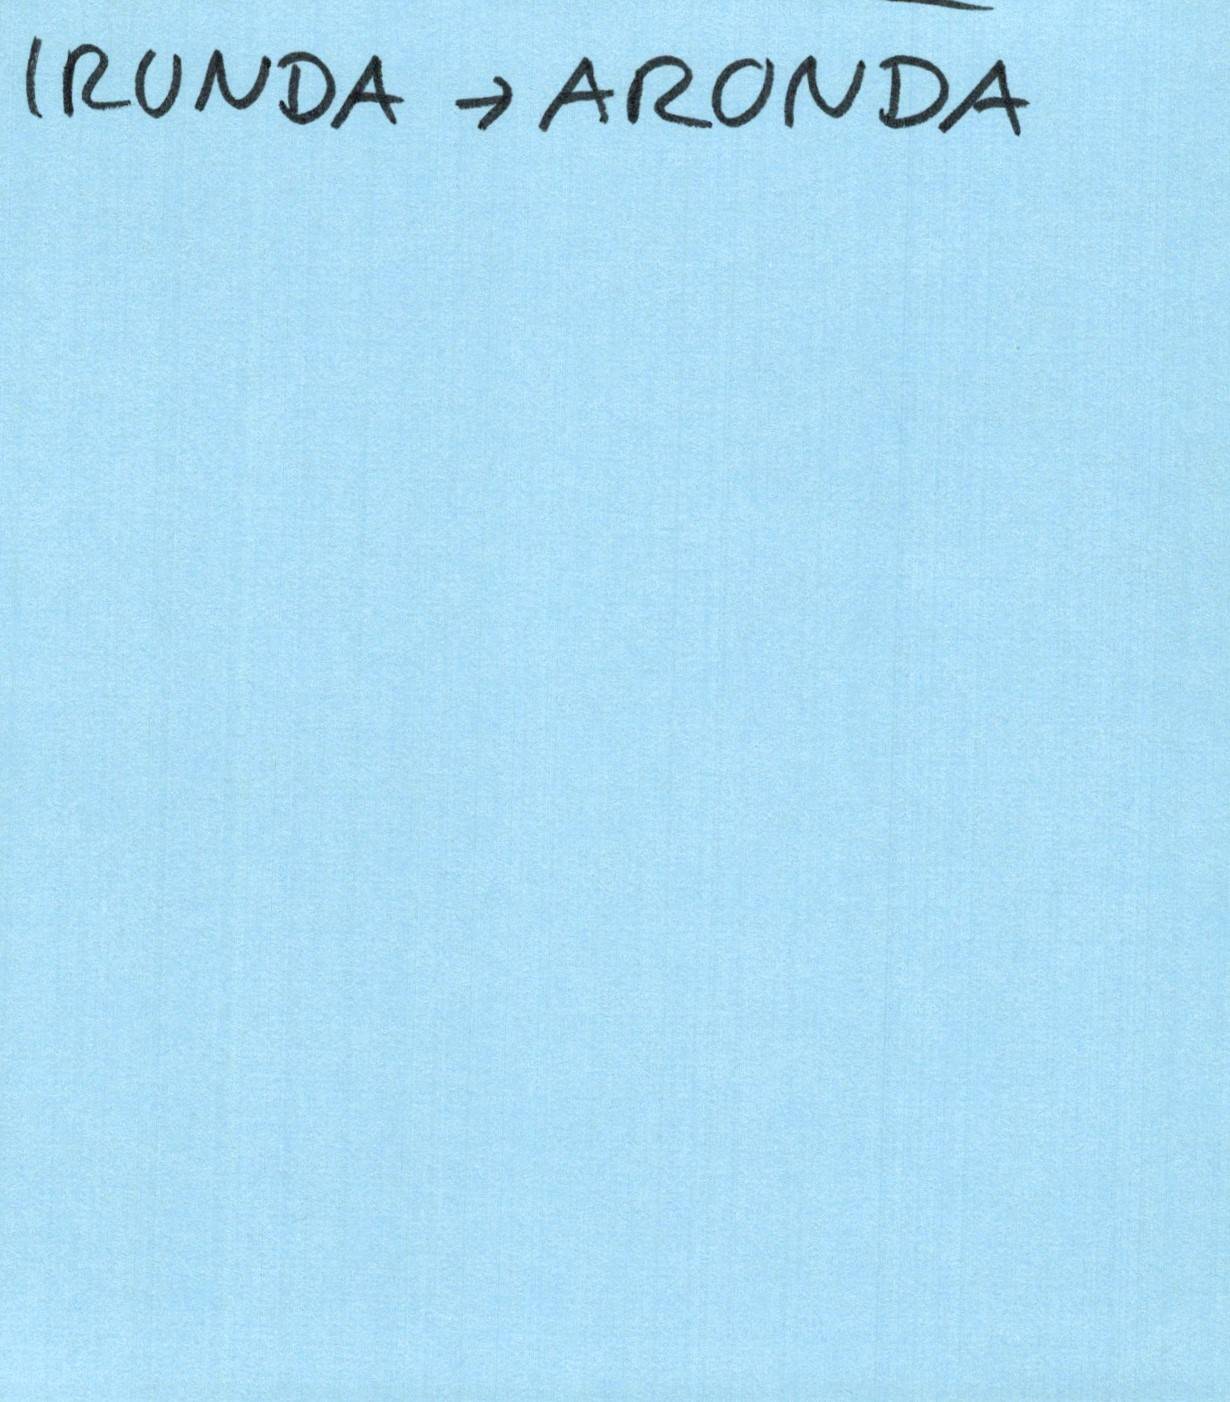 IRUNDA → ARONDA